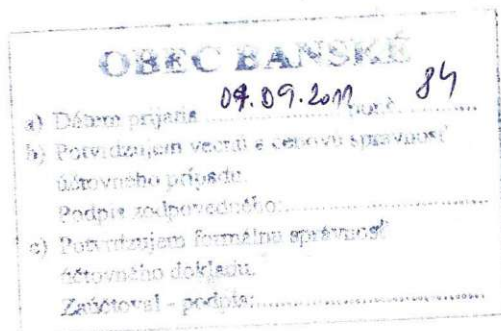 OBEC BANSKÉ
a) Dátum prijatia 07.09.2011 84
b) Potvrdzujem vecnú a cenovú správnosť
účtovného prípadu.
Podpis zodpovedného:
c) Potvrdzujem formálnu správnosť
účtovného dokladu.
Zaúčtoval - podpis: